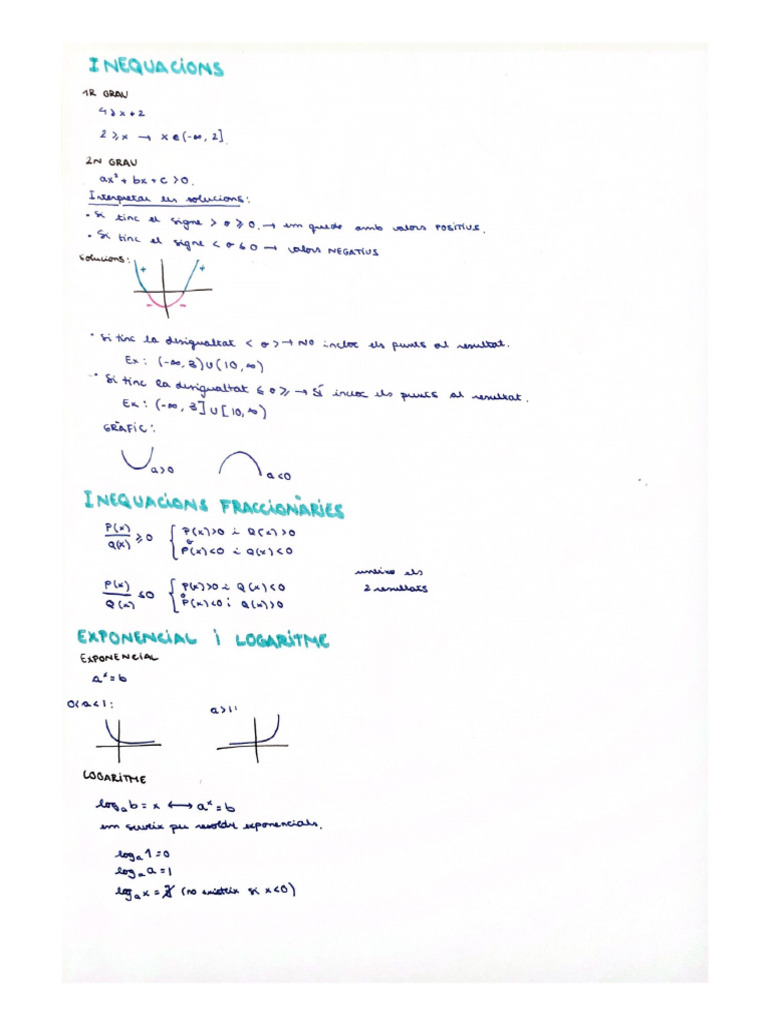 INEQUACIONS
1R GRAU
4 ≥ x + 2
2 ≥ x → x ∈ (-∞, 2]
2N GRAU
ax² + bx + c > 0.
Interpretar les solucions:
• Si tinc el signe > o ≥ 0. → em quedo amb valors POSITIUS.
• Si tinc el signe < o ≤ 0 → valors NEGATIUS
Solucions:
+ +
- -
• Si tinc la desigualtat < o > → NO incloc els punts al resultat.
Ex: (-∞, 3) ∪ (10, ∞)
• Si tinc la desigualtat ≤ o ≥ → SÍ incloc els punts al resultat.
Ex: (-∞, 3] ∪ [10, ∞)
GRÀFIC:
a>0 a<0
INEQUACIONS FRACCIONÀRIES
P(x)/Q(x) ≥ 0 { P(x)>0 i Q(x)>0
o
P(x)<0 i Q(x)<0
uneixo els
2 resultats
P(x)/Q(x) ≤ 0 { P(x)>0 i Q(x)<0
o
P(x)<0 i Q(x)>0
EXPONENCIAL I LOGARITME
EXPONENCIAL
aˣ = b
0<a<1: a>1:
LOGARITME
logₐ b = x ⟷ aˣ = b
em serveix per resoldre exponencials.
logₐ 1 = 0
logₐ a = 1
logₐ x = ∄ (no existeix si x<0)